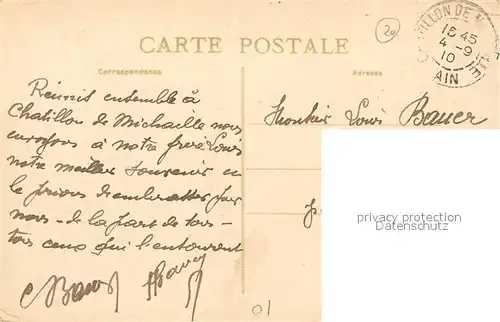 CARTE POSTALE
Correspondance
Adresse
20
CHATILLON DE MICHAILLE
16 45
4 - 9
10
AIN
Réunis ensemble à
Chatillon de Michaille nous
envoyons à notre frère Louis
notre meilleur souvenir et
le prions d'embrasser pour
nous - de la part de tous -
tous ceux qui l'entourent
Monsieur Louis Bauer
privacy protection
Datenschutz
01